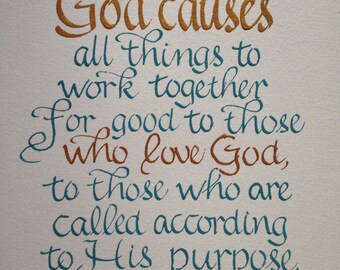 God causes
all things to
work together
for good to those
who love God,
to those who are
called according
to His purpose